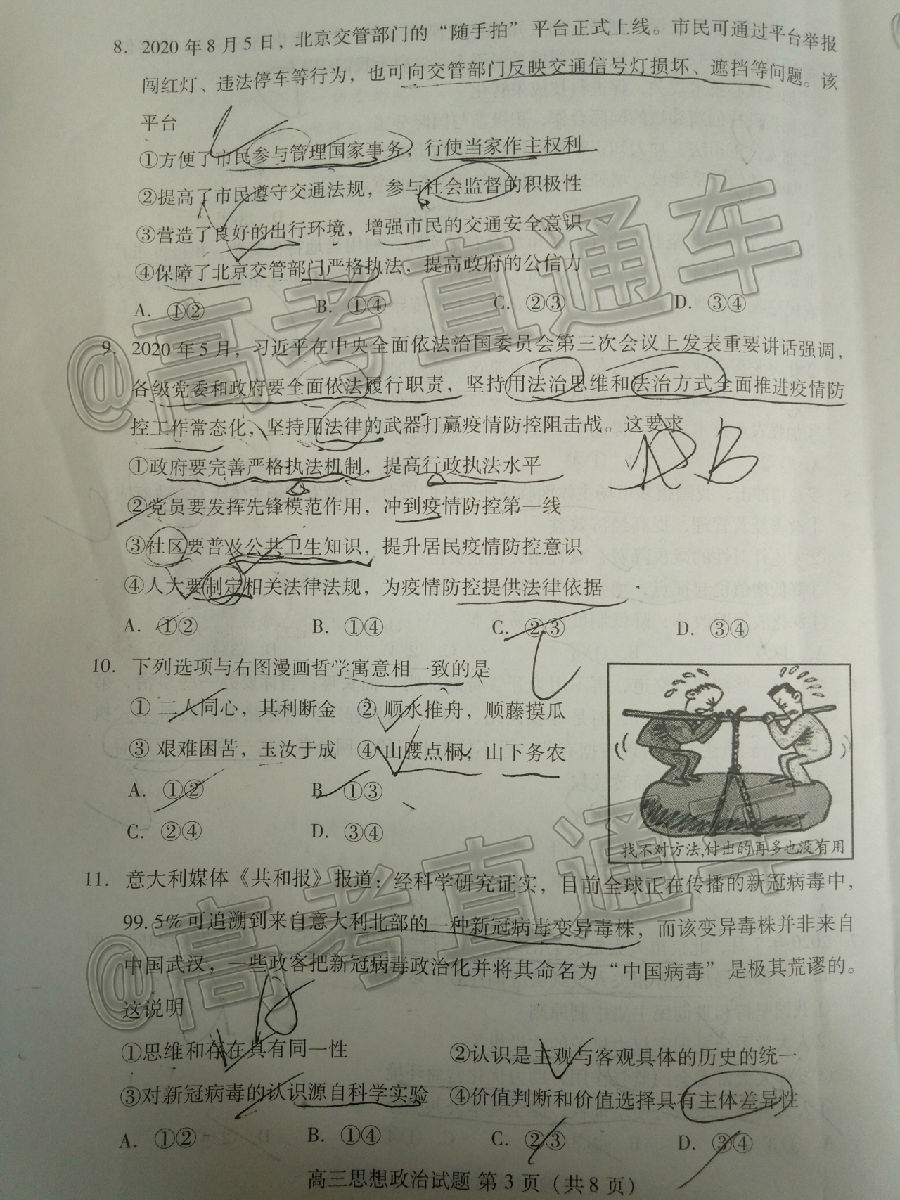 8. 2020 年 8 月 5 日，北京交管部门的“随手拍”平台正式上线。市民可通过平台举报
闯红灯、违法停车等行为，也可向交管部门反映交通信号灯损坏、遮挡等问题。该
平台
①方便了市民参与管理国家事务，行使当家作主权利
②提高了市民遵守交通法规，参与社会监督的积极性
③营造了良好的出行环境，增强市民的交通安全意识
④保障了北京交管部门严格执法，提高政府的公信力
A. ①② B. ①④ C. ②③ D. ③④
9. 2020 年 5 月，习近平在中央全面依法治国委员会第三次会议上发表重要讲话强调，
各级党委和政府要全面依法履行职责，坚持用法治思维和法治方式全面推进疫情防
控工作常态化，坚持用法律的武器打赢疫情防控阻击战。这要求
①政府要完善严格执法机制，提高行政执法水平
②党员要发挥先锋模范作用，冲到疫情防控第一线
③社区要普及公共卫生知识，提升居民疫情防控意识
④人大要制定相关法律法规，为疫情防控提供法律依据
A. ①② B. ①④ C. ②③ D. ③④
B
10. 下列选项与右图漫画哲学寓意相一致的是
① 二人同心，其利断金 ② 顺水推舟，顺藤摸瓜
③ 艰难困苦，玉汝于成 ④ 山腰点桐，山下务农
A. ①② B. ①③
C. ②④ D. ③④
找不对方法,付出的再多也没有用
11. 意大利媒体《共和报》报道：经科学研究证实，目前全球正在传播的新冠病毒中，
99.5%可追溯到来自意大利北部的一种新冠病毒变异毒株，而该变异毒株并非来自
中国武汉，一些政客把新冠病毒政治化并将其命名为“中国病毒”是极其荒谬的。
这说明
①思维和存在具有同一性 ②认识是主观与客观具体的历史的统一
③对新冠病毒的认识源自科学实验 ④价值判断和价值选择具有主体差异性
A. ①② B. ①④ C. ②③ D. ③④
高三思想政治试题 第 3 页（共 8 页）
@高考直通车
@高考直通车